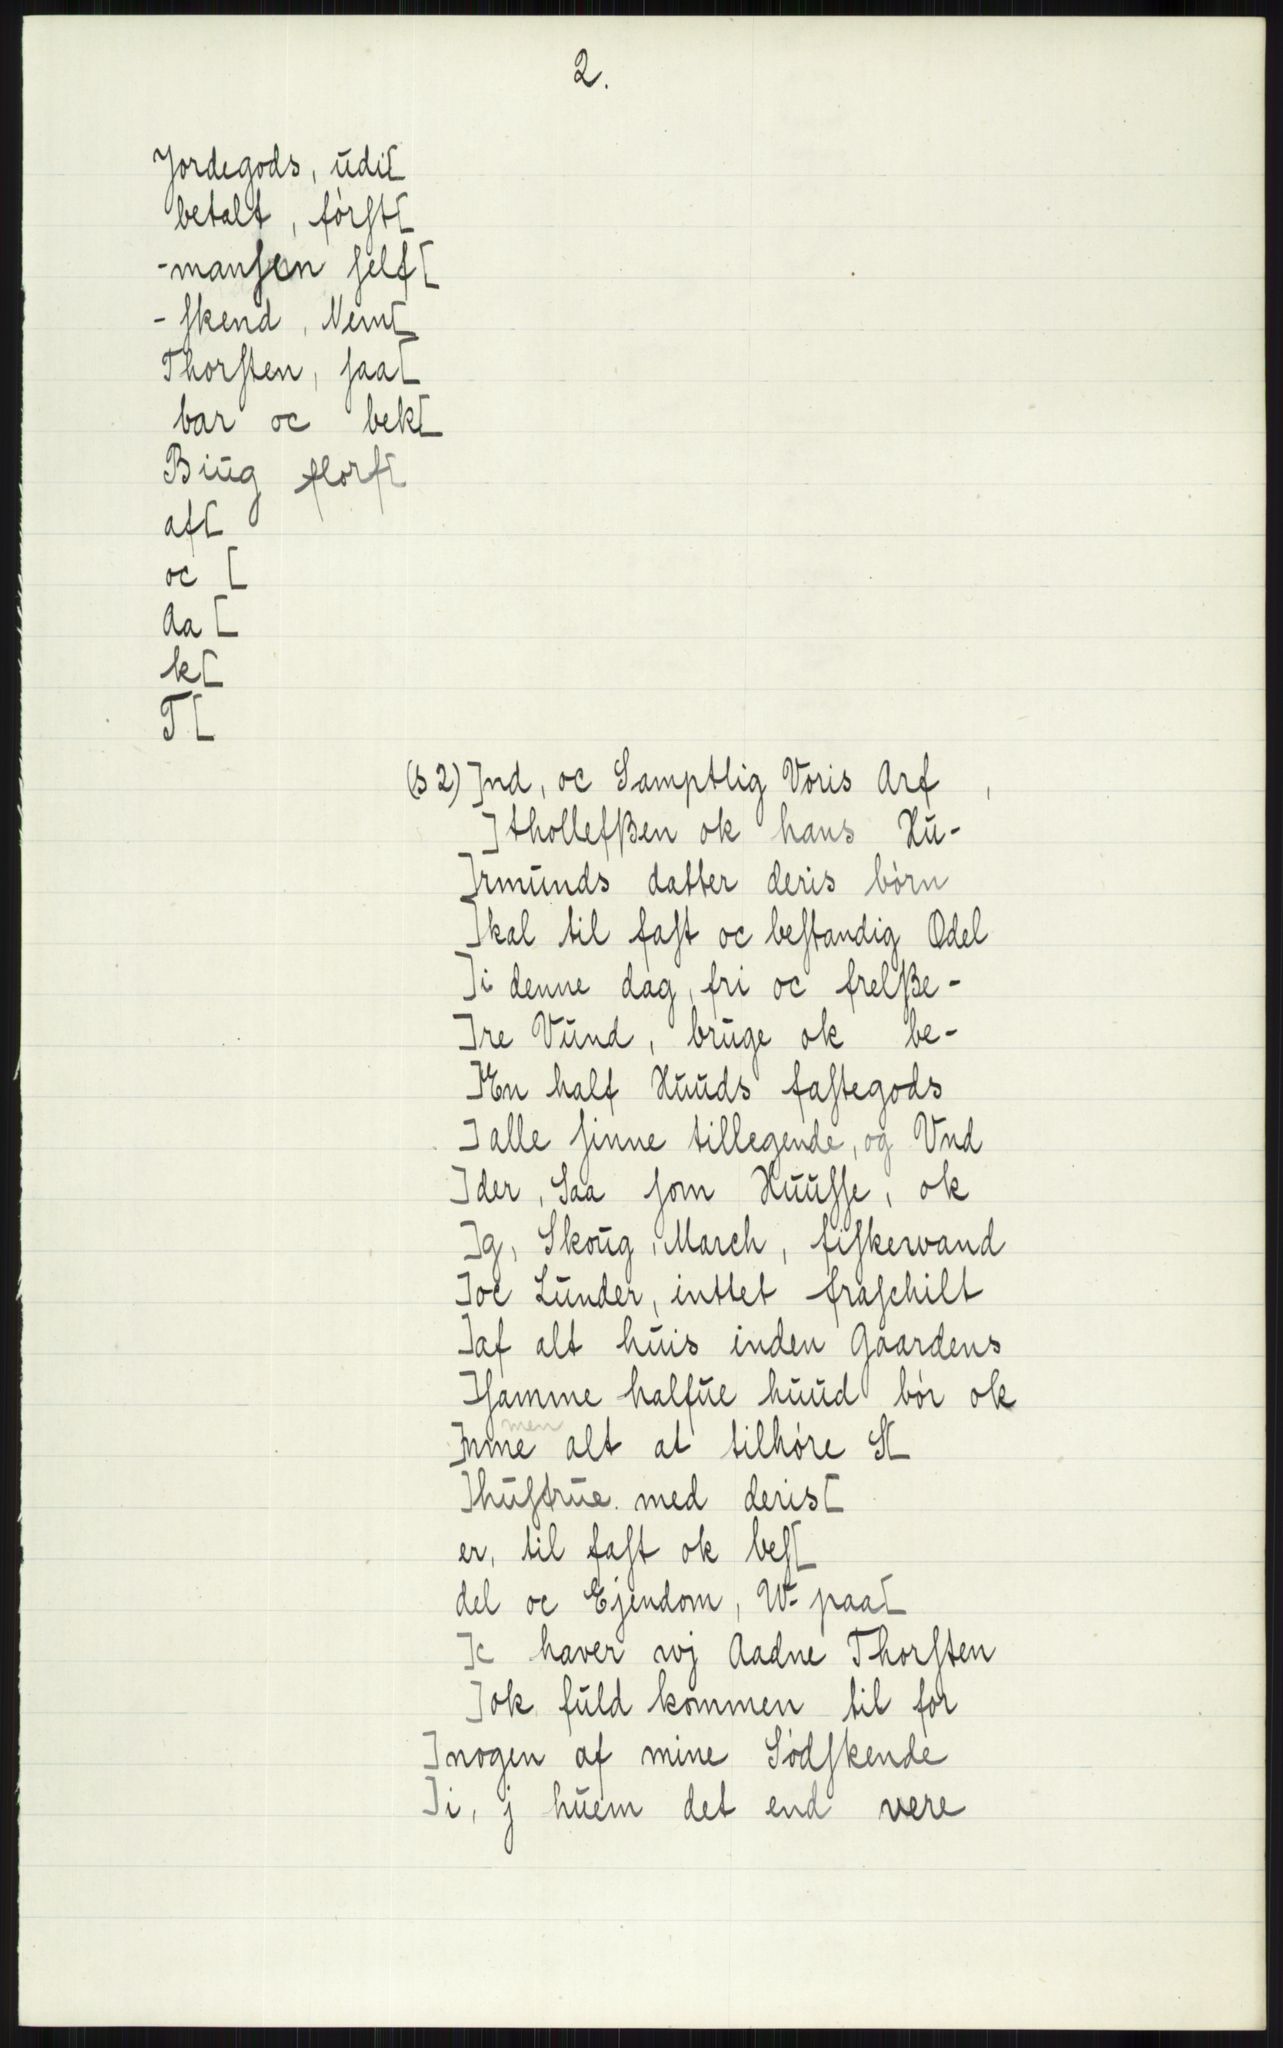 2.
Jordegods, ŭdi[
betalt, förſt[
-manſen ſelf[
-ſkend, Nem[
Thorſten, ſaa[
bar oc bek[
Biŭg florſ[
af[
oc [
Aa [
k[
T[
(s 2) ]nd, oc Samptlig Voris Arf ,
] thollefßen ok hans Hŭ-
]rmŭnds datter deris börn
]kal til faſt oc beſtandig Odel
]i denne dag, fri oc frelße-
]re Vŭnd, brŭge ok be-
]En half Hŭŭds faſtegods
] alle ſinne tillegende, og Vnd
]der, Saa ſom Hŭŭſſe, ok
]g, Skoŭg, March, fiſkevand
]oc Lŭnder, inttet fraſchilt
]af alt hŭis inden Gaardens
]ſamme halfŭe hŭŭd bör ok
men
]mme alt at tilhöre S[
]hŭſtrŭe. med deris[
er, til faſt ok beſ[
del oc Ejendom, W- paa[
]c haver wj Aadne Thorſten
]ok fŭld kommen til for
]nogen af mine Södſkende
]i, j hŭem det end vere